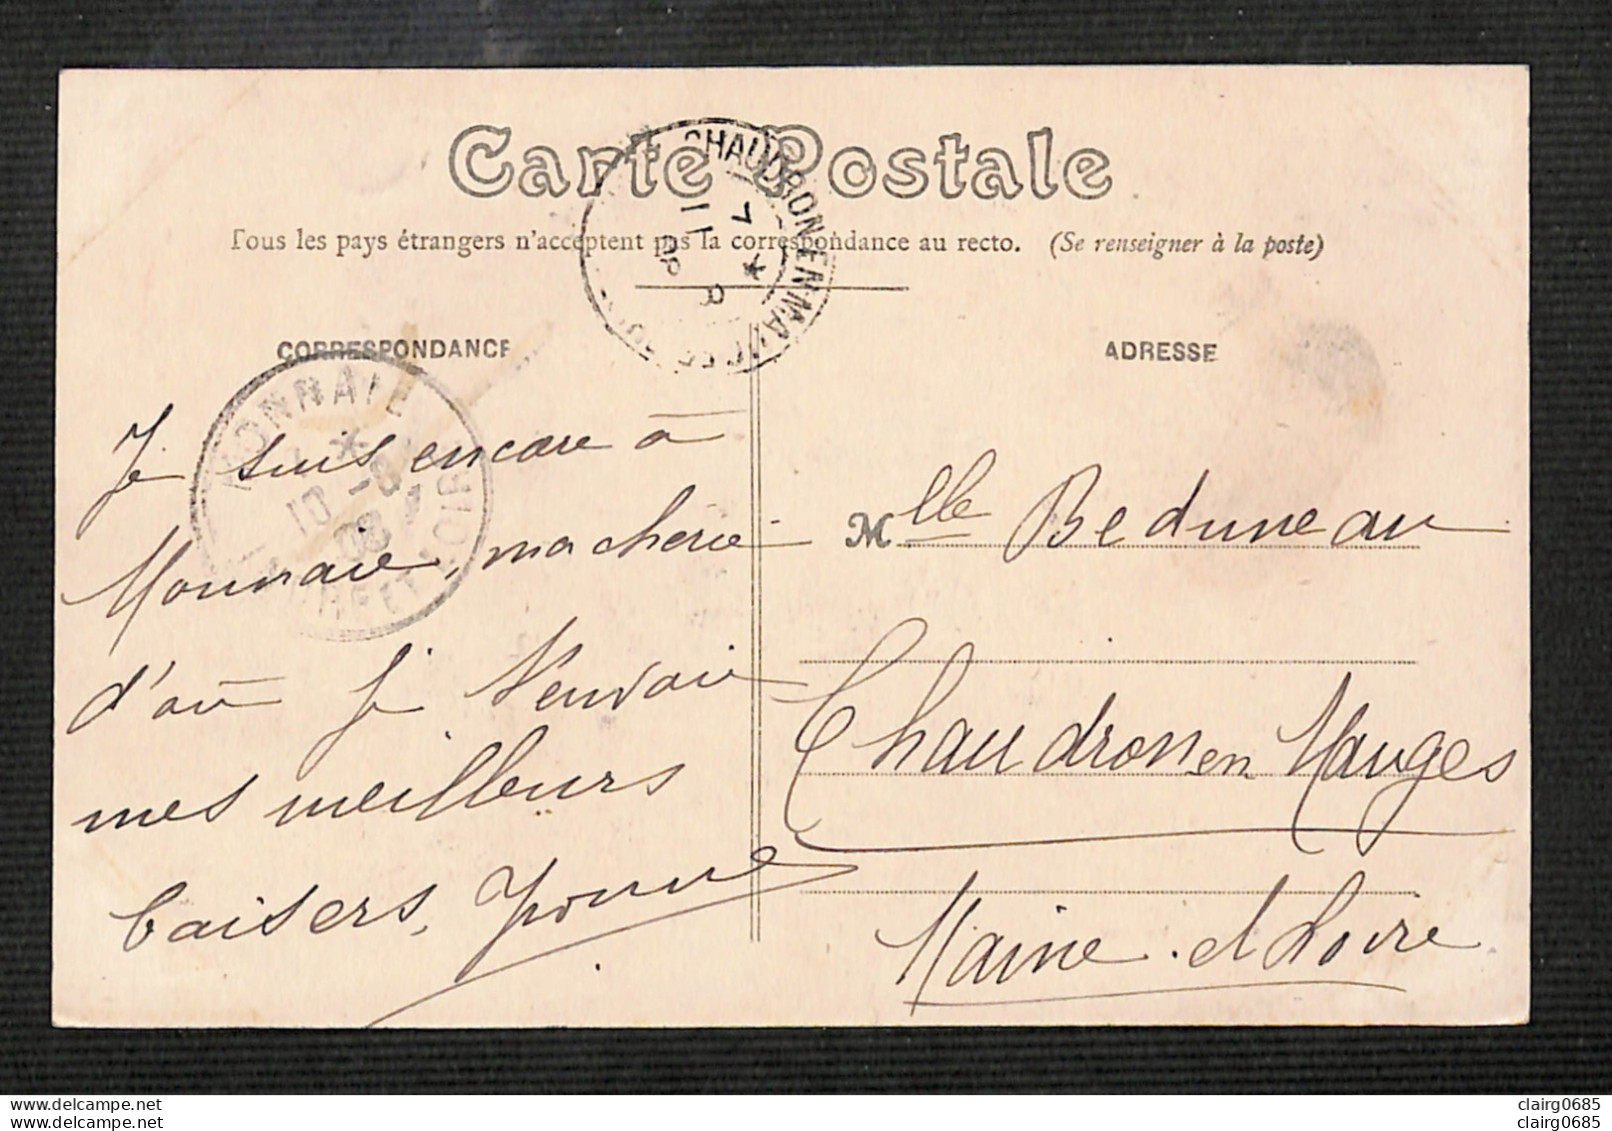 Carte Postale
Tous les pays étrangers n'acceptent pas la correspondance au recto. (Se renseigner à la poste)
CHAUDRON EN MAUGES
7 *
11 8
08
CORRESPONDANCE
ADRESSE
MONNAIE
*
10 -8
08
INDRE ET LOIRE
Je suis encore à
Monnaie, ma chérie
d'où je t'envoie
mes meilleurs
baisers, Yvonne
Mlle Beduneau
Chaudron en Mauges
Maine et Loire
clairg0685
clairg0685
clairg0685
clairg0685